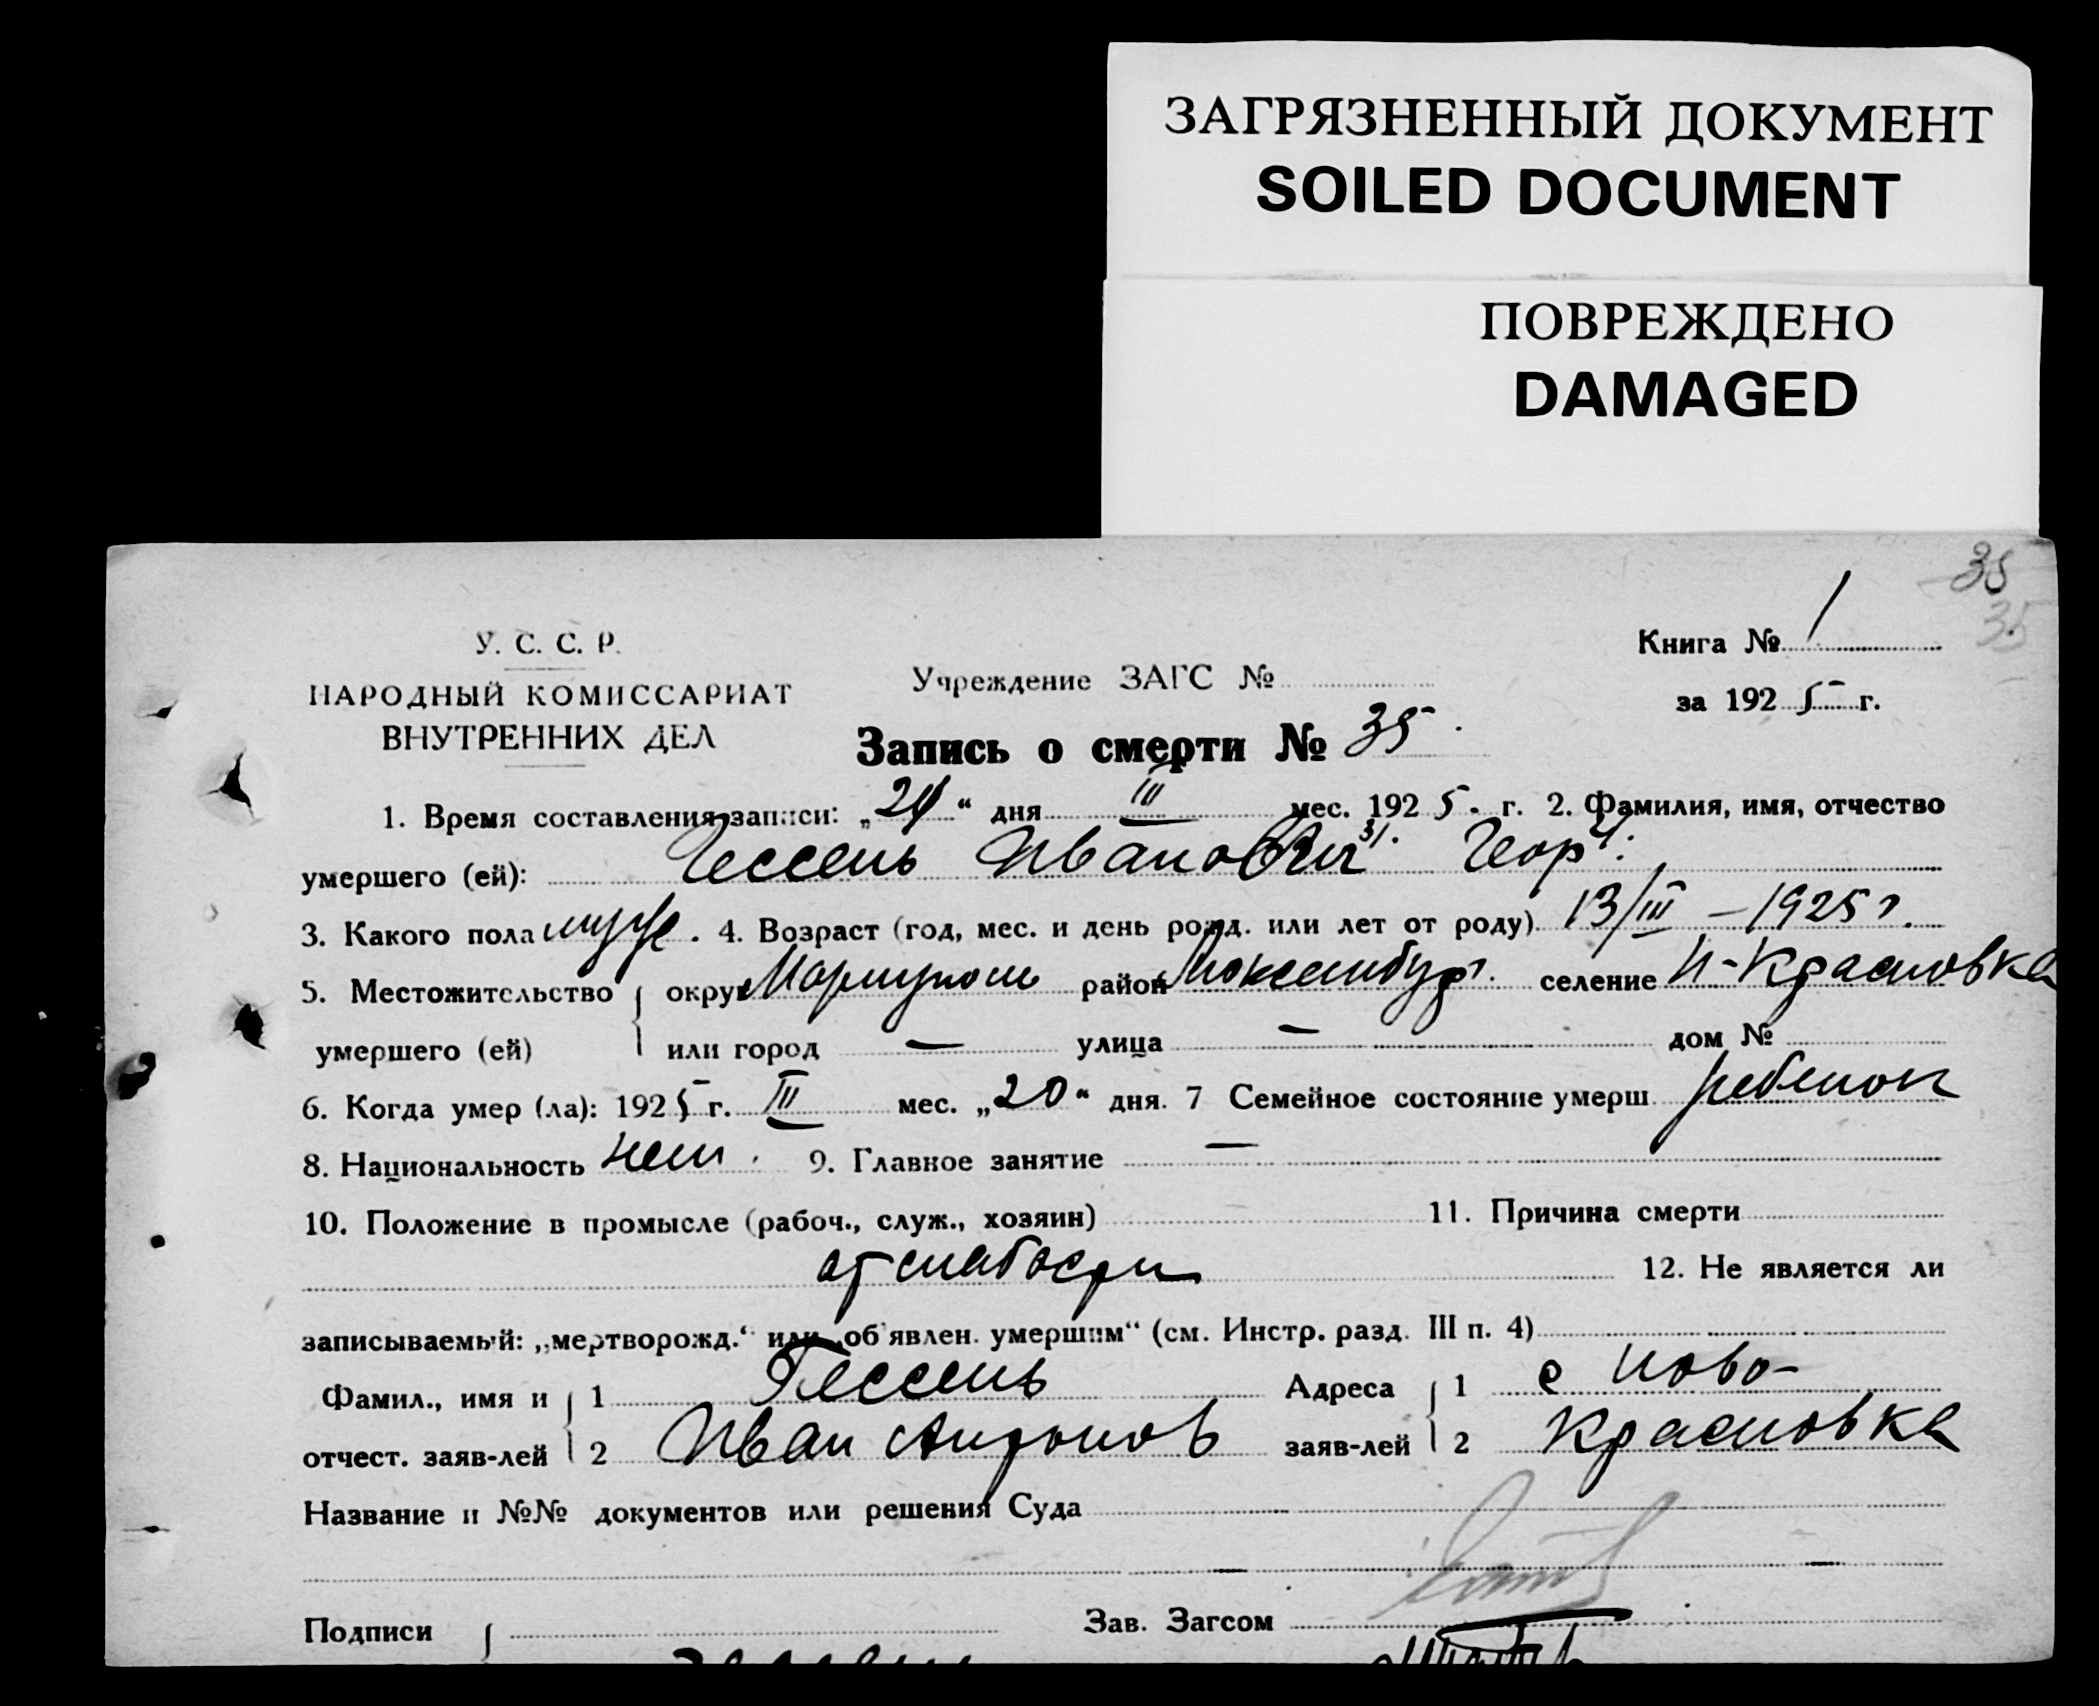 ЗАГРЯЗНЕННЫЙ ДОКУМЕНТ
SOILED DOCUMENT
ПОВРЕЖДЕНО
DAMAGED
35
35
У. С. С. Р.
НАРОДНЫЙ КОМИССАРИАТ
ВНУТРЕННИХ ДЕЛ
Учреждение ЗАГС №
Книга № 1
за 1925 г.
Запись о смерти № 35
1. Время составления записи: „24“ дня III мес. 1925 г. 2. Фамилия, имя, отчество
умершего (ей): Гессень Иванович Геор
3. Какого пола муж. 4. Возраст (год, мес. и день рожд. или лет от роду) 13/III – 1925 г.
5. Местожительство округ Мариупол район Люксембург. селение Н-Красновка
умершего (ей) или город — улица — дом №
6. Когда умер (ла): 1925 г. III мес. „20“ дня. 7 Семейное состояние умерш. ребенок
8. Национальность нем. 9. Главное занятие —
10. Положение в промысле (рабоч., служ., хозяин) 11. Причина смерти
от слабости 12. Не является ли
записываемый: „мертворожд.“ или „об'явлен. умершим“ (см. Инстр. разд. III п. 4)
Фамил., имя и 1 Гессень Адреса 1 с Ново-
отчест. заяв-лей 2 Иван Антонов заяв-лей 2 Красновка
Название и №№ документов или решения Суда
Подписи Зав. Загсом